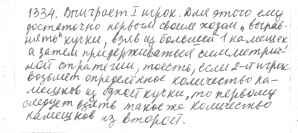 1334. Выиграет I игрок. Для этого ему
достаточно первым своим ходом „выров-
нять" кучки, взяв из большей 1 камешек
а затем придерживаться симметрич-
ной стратегии, то есть, если 2-й игрок
возьмет определенное количество ка-
мешков из одной кучки, то первому
следует взять такое же количество
камешков из второй.